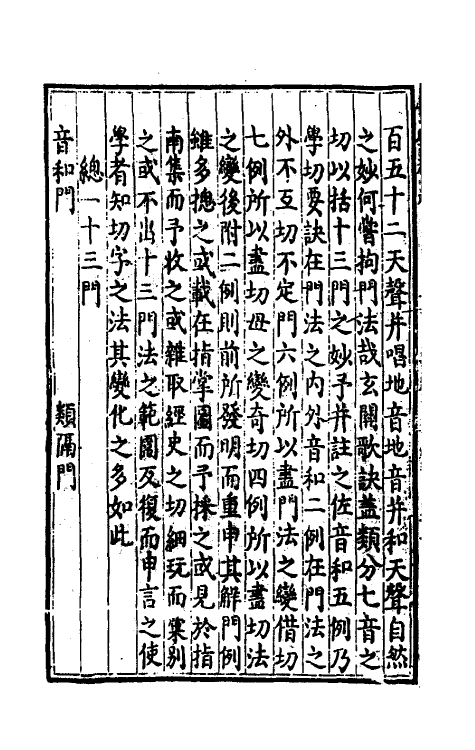 百五十二天聲并唱地音地音并和天聲自然
之妙何嘗拘門法哉玄關歌訣蓋類分七音之
切以括十三門之妙予并註之佐音和五例乃
學切要訣在門法之内外音和二例在門法之
外不互切不定門六例所以盡門法之變借切
七例所以盡切母之變竒切四例所以盡切法
之變後附二例則前所發明而重申其解門例
雖多揔之或載在指掌圖而予採之或見於指
南集而予收之或雜取經史之切細玩而彙别
之或不出十三門法之範圍反復而申言之使
學者知切字之法其變化之多如此
總一十三門
音和門　類隔門